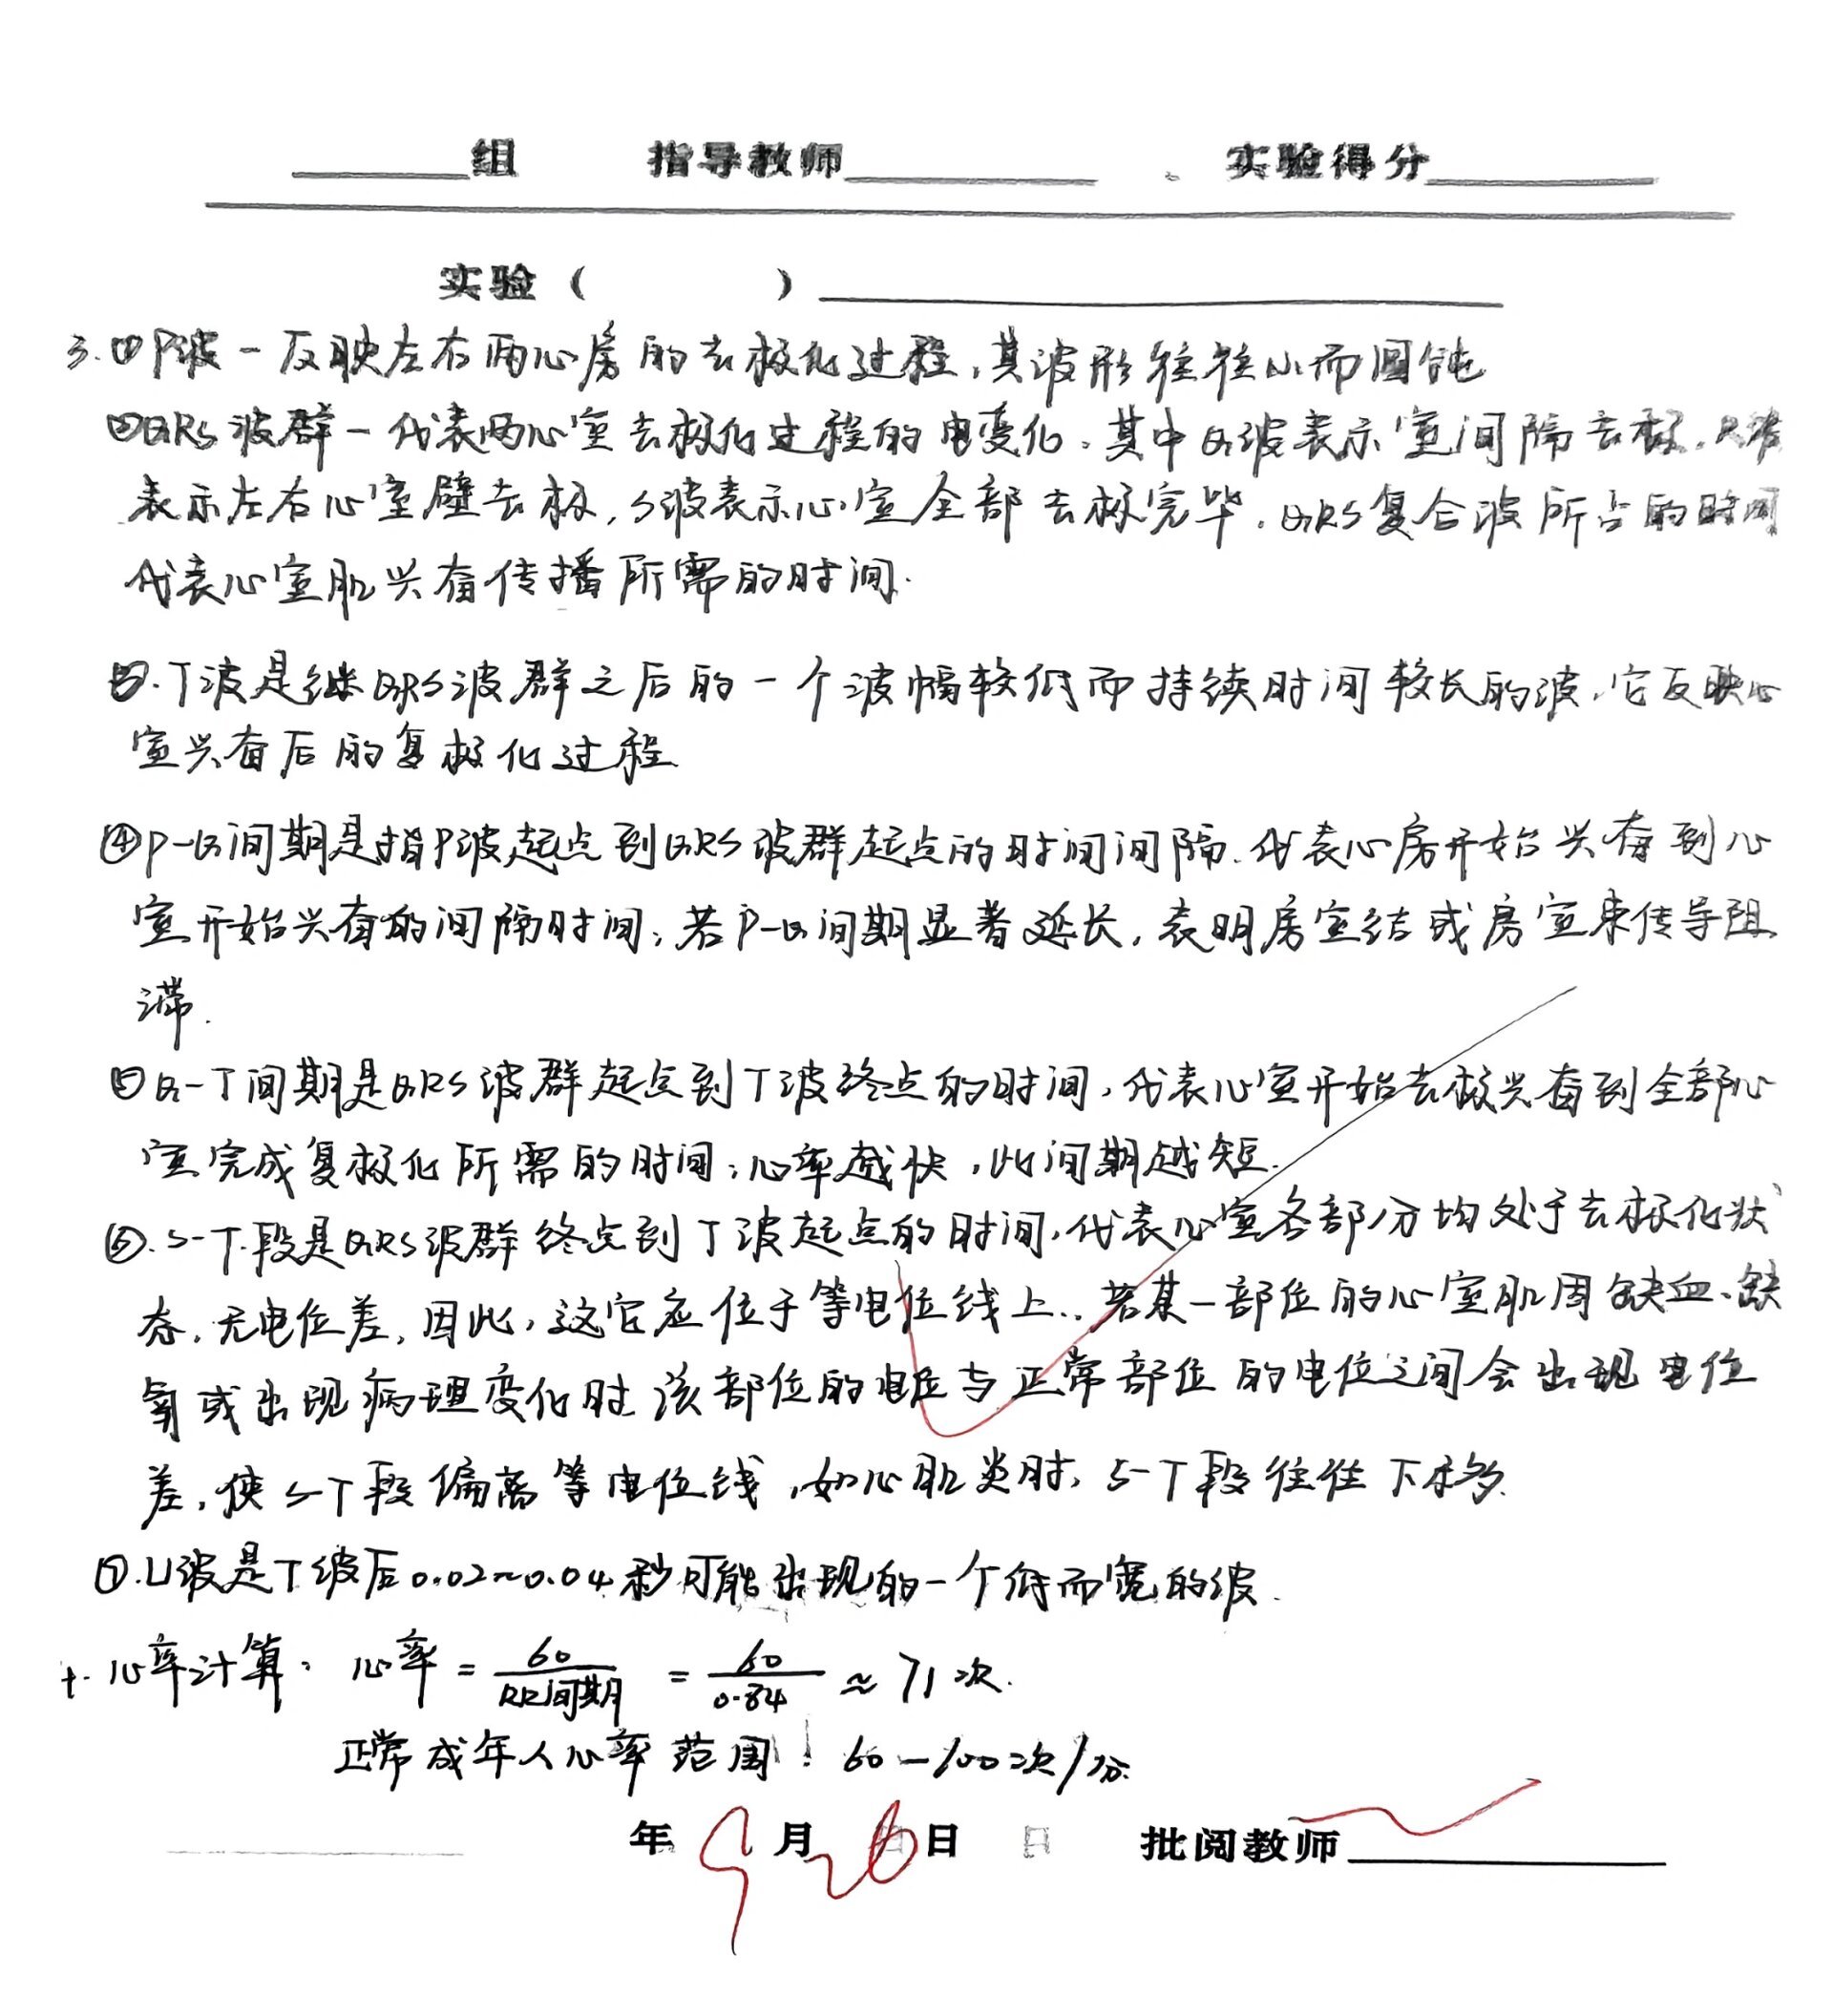 组 指导教师 实验得分
实验（ ）
3.①P波－反映左右两心房的去极化过程,其波形往往小而圆钝
②QRS波群－代表两心室去极化过程的电变化.其中Q波表示室间隔去极.R波
表示左右心室壁去极,S波表示心室全部去极完毕.QRS复合波所占的时间
代表心室肌兴奋传播所需的时间.
③.T波是继QRS波群之后的一个波幅较低而持续时间较长的波.它反映心
室兴奋后的复极化过程
④P-Q间期是指P波起点到QRS波群起点的时间间隔.代表心房开始兴奋到心
室开始兴奋的间隔时间;若P-Q间期显著延长,表明房室结或房室束传导阻
滞.
⑤Q-T间期是QRS波群起点到T波终点的时间,代表心室开始去极兴奋到全部心
室完成复极化所需的时间;心率越快,此间期越短.
⑥.S-T段是QRS波群终点到T波起点的时间,代表心室各部分均处于去极化状
态,无电位差,因此,这它应位于等电位线上.若某一部位的心室肌因缺血、缺
氧或出现病理变化时该部位的电位与正常部位的电位之间会出现电位
差,使S-T段偏离等电位线,如心肌炎时,S-T段往往下移.
⑦.U波是T波后0.02~0.04秒可能出现的一个低而宽的波.
十.心率计算: 心率=60/RR间期=60/0.84≈71次.
正常成年人心率范围: 60-100次/分.
年 9月26日 日 批阅教师